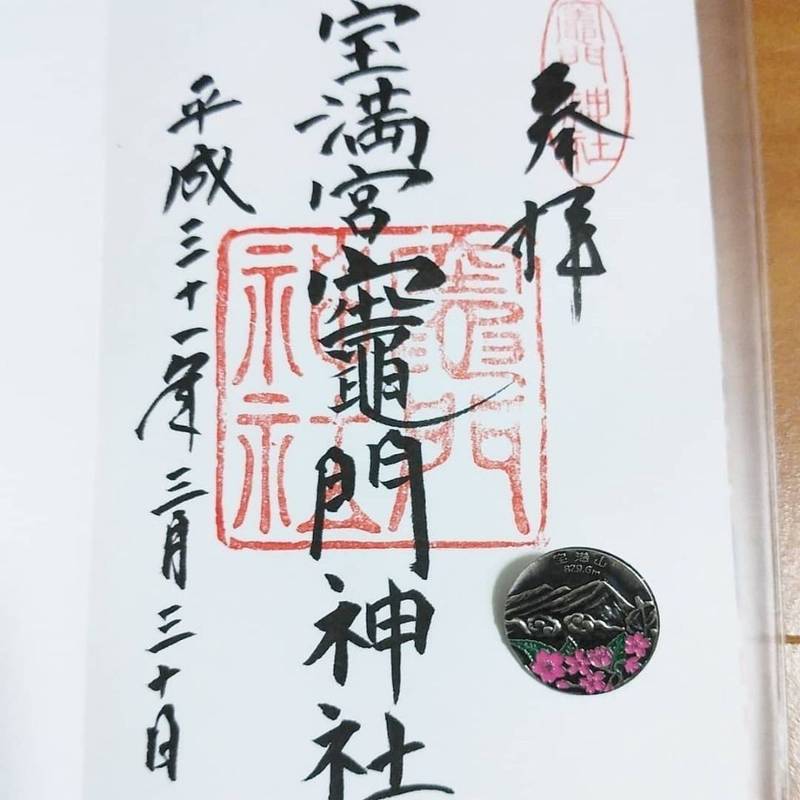 奉拝
竈門神社
宝満宮竈門神社
竈門神社
平成三十一年三月三十日
宝満山
829.6m